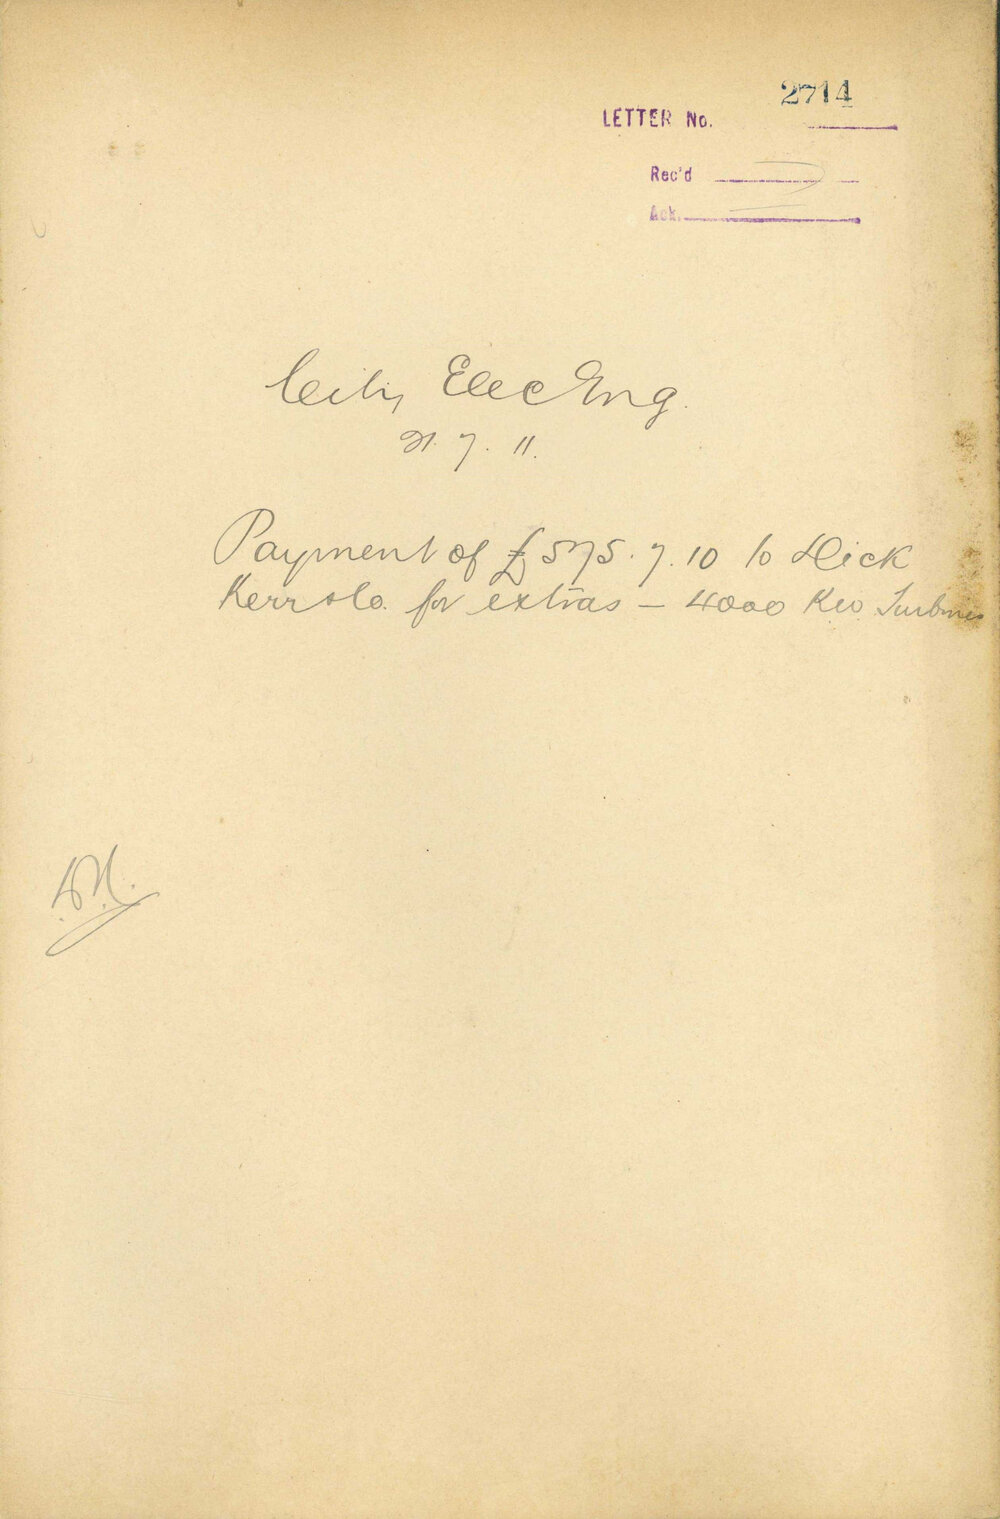 2714
LETTER No.
Rec'd
Ack.
City Elec Eng.
21. 7. 11.
Payment of £575. 7. 10 to Dick
Kerr & Co. for extras – 4000 Kw Turbines